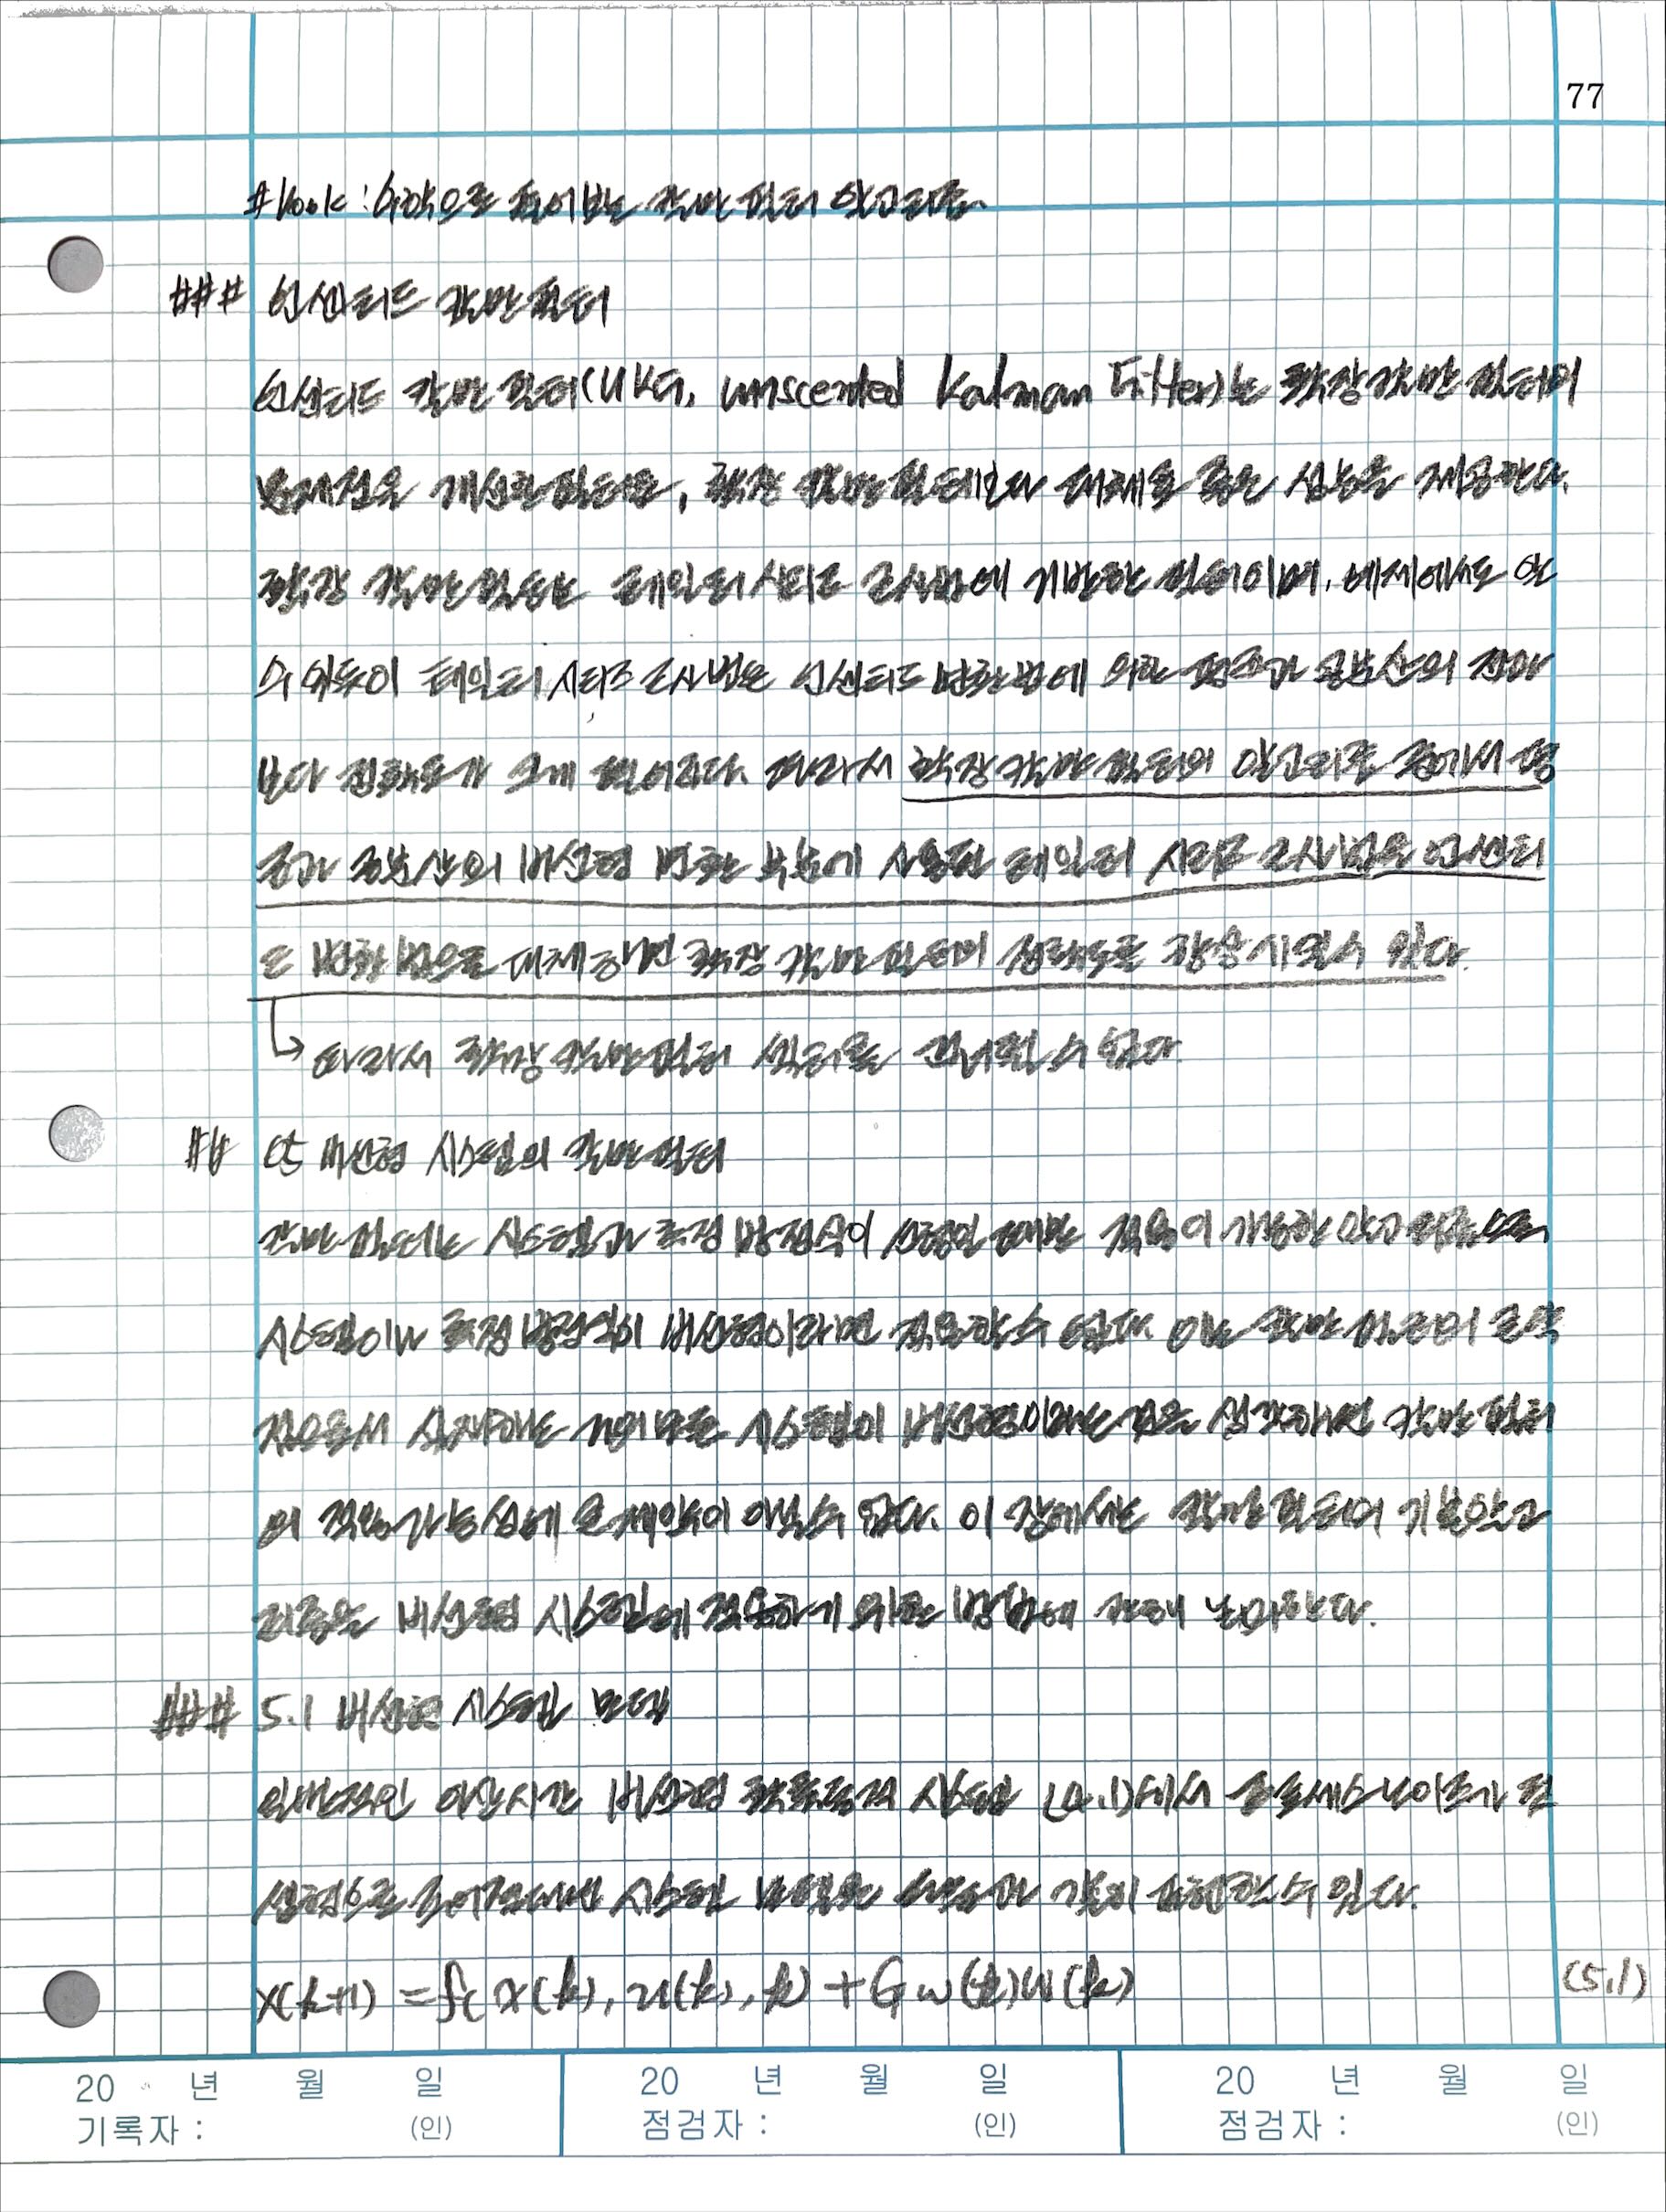 77
#book : 수학으로 풀어보는 칼만 필터 알고리즘
### 언센티드 칼만필터
언센티드 칼만 필터(UKF, unscented Kalman Filter)는 확장 칼만 필터의
문제점을 개선한 필터로, 확장 칼만 필터보다 대체로 좋은 성능을 제공한다.
확장 칼만 필터는 테일러 시리즈 근사법에 기반한 필터이며, 예제에서도 알
수 있듯이 테일러 시리즈 근사법은 언센티드 변환법에 의한 평균과 공분산의 전파
보다 정확도가 크게 떨어진다. 따라서 확장 칼만 필터의 알고리즘 중에서 평
균과 공분산의 비선형 변환 부분에 사용된 테일러 시리즈 근사법을 언센티
드 변환법으로 대체하면 확장 칼만 필터의 정확도를 향상 시킬 수 있다.
↳ 따라서 확장 칼만필터 섹터를 건너뛸 수 없다.
## 05 비선형 시스템의 칼만 필터
칼만 필터는 시스템과 측정 방정식이 선형일 때만 적용이 가능한 알고리즘으로
시스템이나 측정 방정식이 비선형이라면 적용할 수 없다. 이는 칼만 필터의
실재하는 거의 모든 시스템이 비선형이라는 것을 생각하면 칼만 필터
의 적용 가능성에 큰 제약이 아닐 수 없다. 이 장에서는 칼만 필터의 기본 알고
리즘을 비선형 시스템에 적용하기 위한 방법에 관해 논의한다.
### 5.1 비선형 시스템 모델
일반적인 이산시간 비선형 확률동적 시스템 (4.1)에서 프로세스 노이즈가 선
형으로 주어진다면 시스템 모델은 다음과 같이 표현할 수 있다.
x(k+1) = f(x(k), u(k), k) + G w(k)w(k) (5.1)
20 년 월 일 20 년 월 일 20 년 월 일
기록자 : (인) 점검자 : (인) 점검자 : (인)